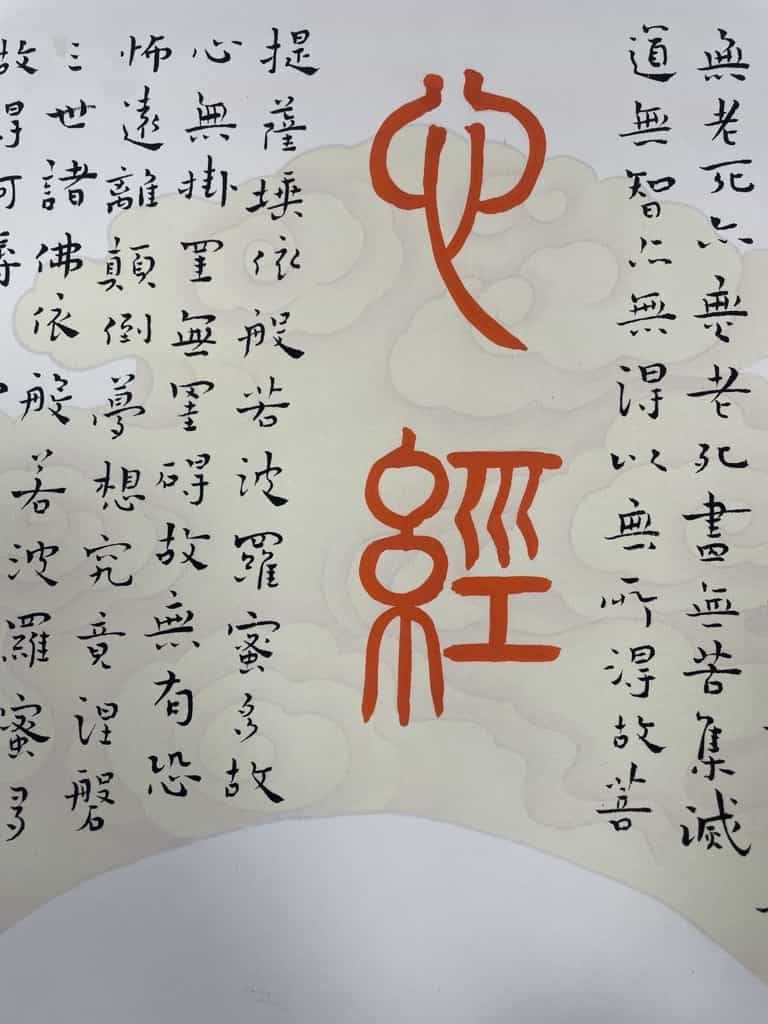 無老死亦無老死盡無苦集滅
道無智亦無得以無所得故菩
心經
提薩埵依般若波羅蜜多故
心無掛罣無罣碍故無有恐
怖遠離顛倒夢想究竟涅磐
三世諸佛依般若波羅蜜多
故